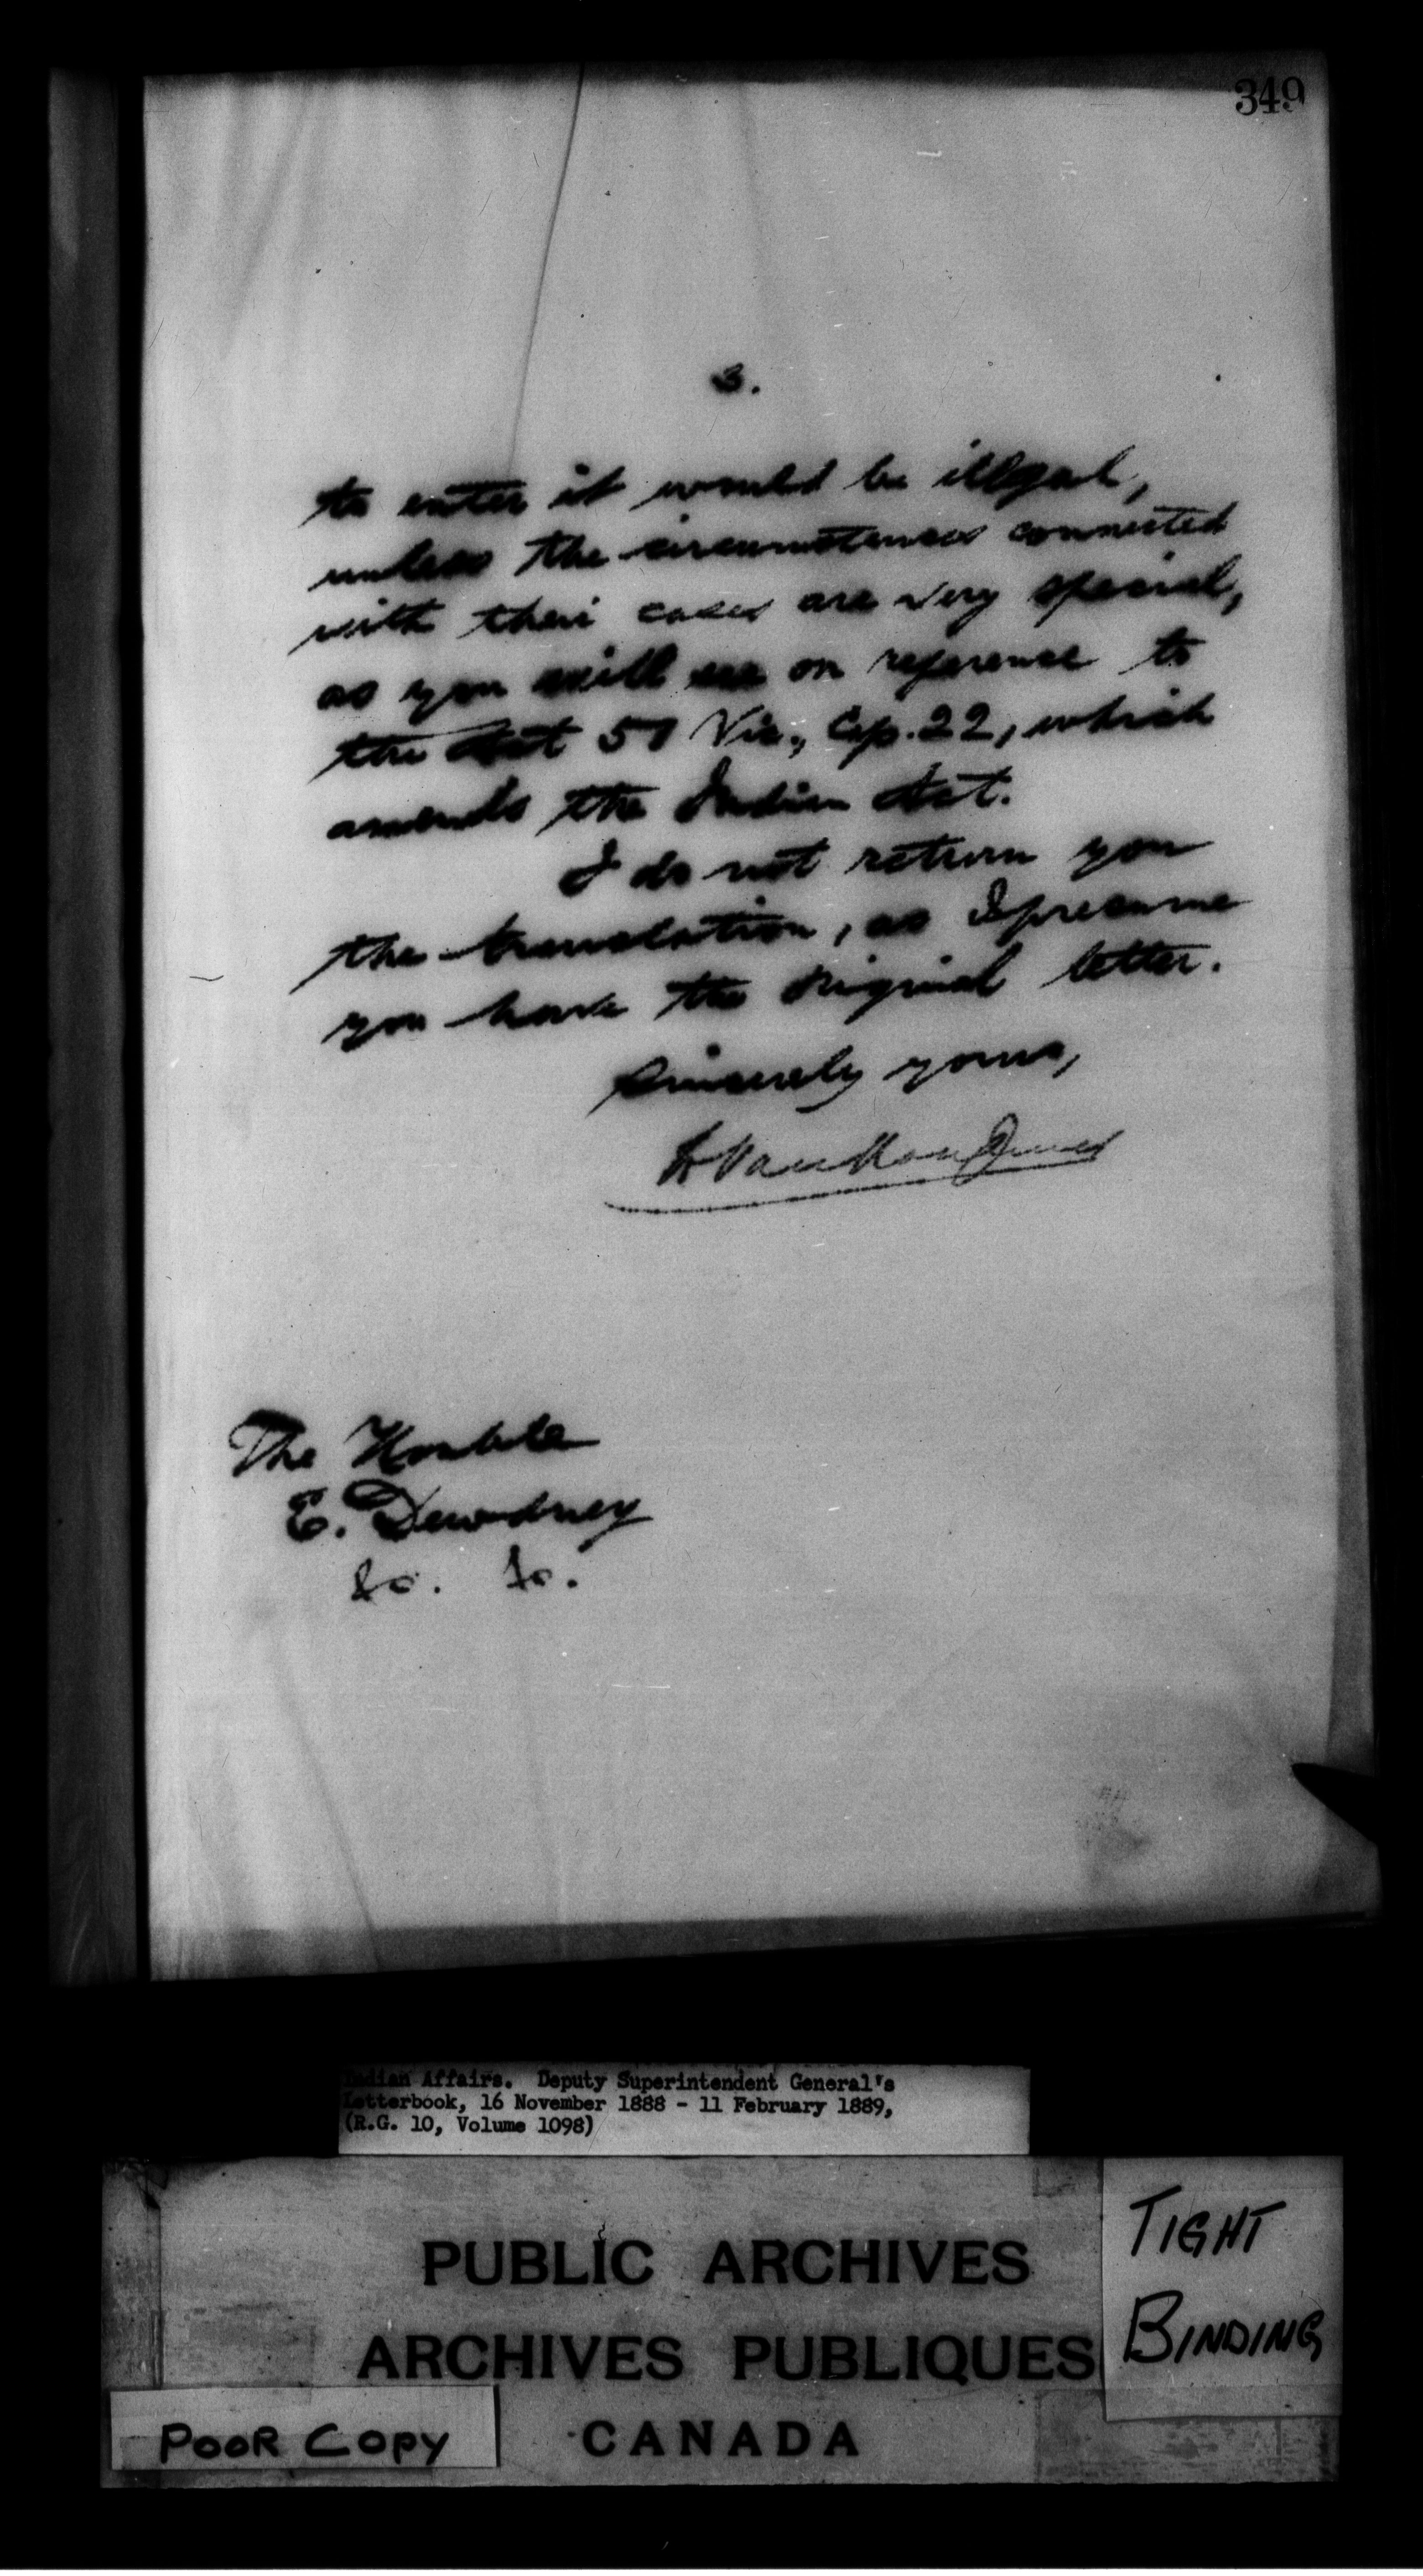 349
3.
to enter it would be illegal,
unless the circumstances connected
with their cases are very special,
as you will see on reference to
the Act 51 Vic., Cap. 22, which
amends the Indian Act.
I do not return you
the translation, as I presume
you have the original letter.
Sincerely yours,
L Vankoughnet
The Honble
E. Dewdney
&c. &c.
Indian Affairs. Deputy Superintendent General's
Letterbook, 16 November 1888 - 11 February 1889,
(R.G. 10, Volume 1098)
PUBLIC ARCHIVES
ARCHIVES PUBLIQUES
CANADA
TIGHT
BINDING
POOR COPY